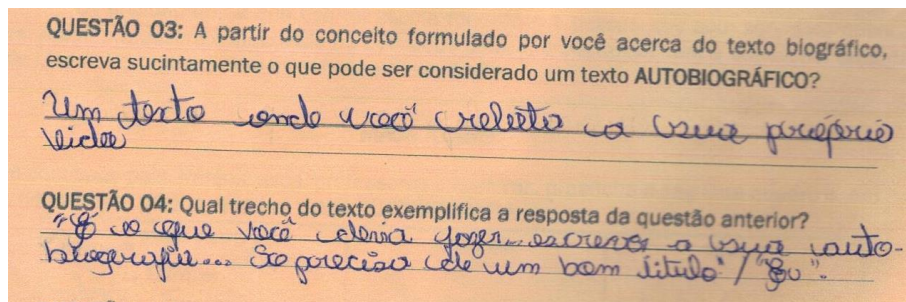 QUESTÃO 03: A partir do conceito formulado por você acerca do texto biográfico,
escreva sucintamente o que pode ser considerado um texto AUTOBIOGRÁFICO?
Um texto onde você relata a sua própria
vida
QUESTÃO 04: Qual trecho do texto exemplifica a resposta da questão anterior?
"É o que você devia fazer... escrever a sua auto-
biografia... So precisa de um bom titulo" / "Eu".